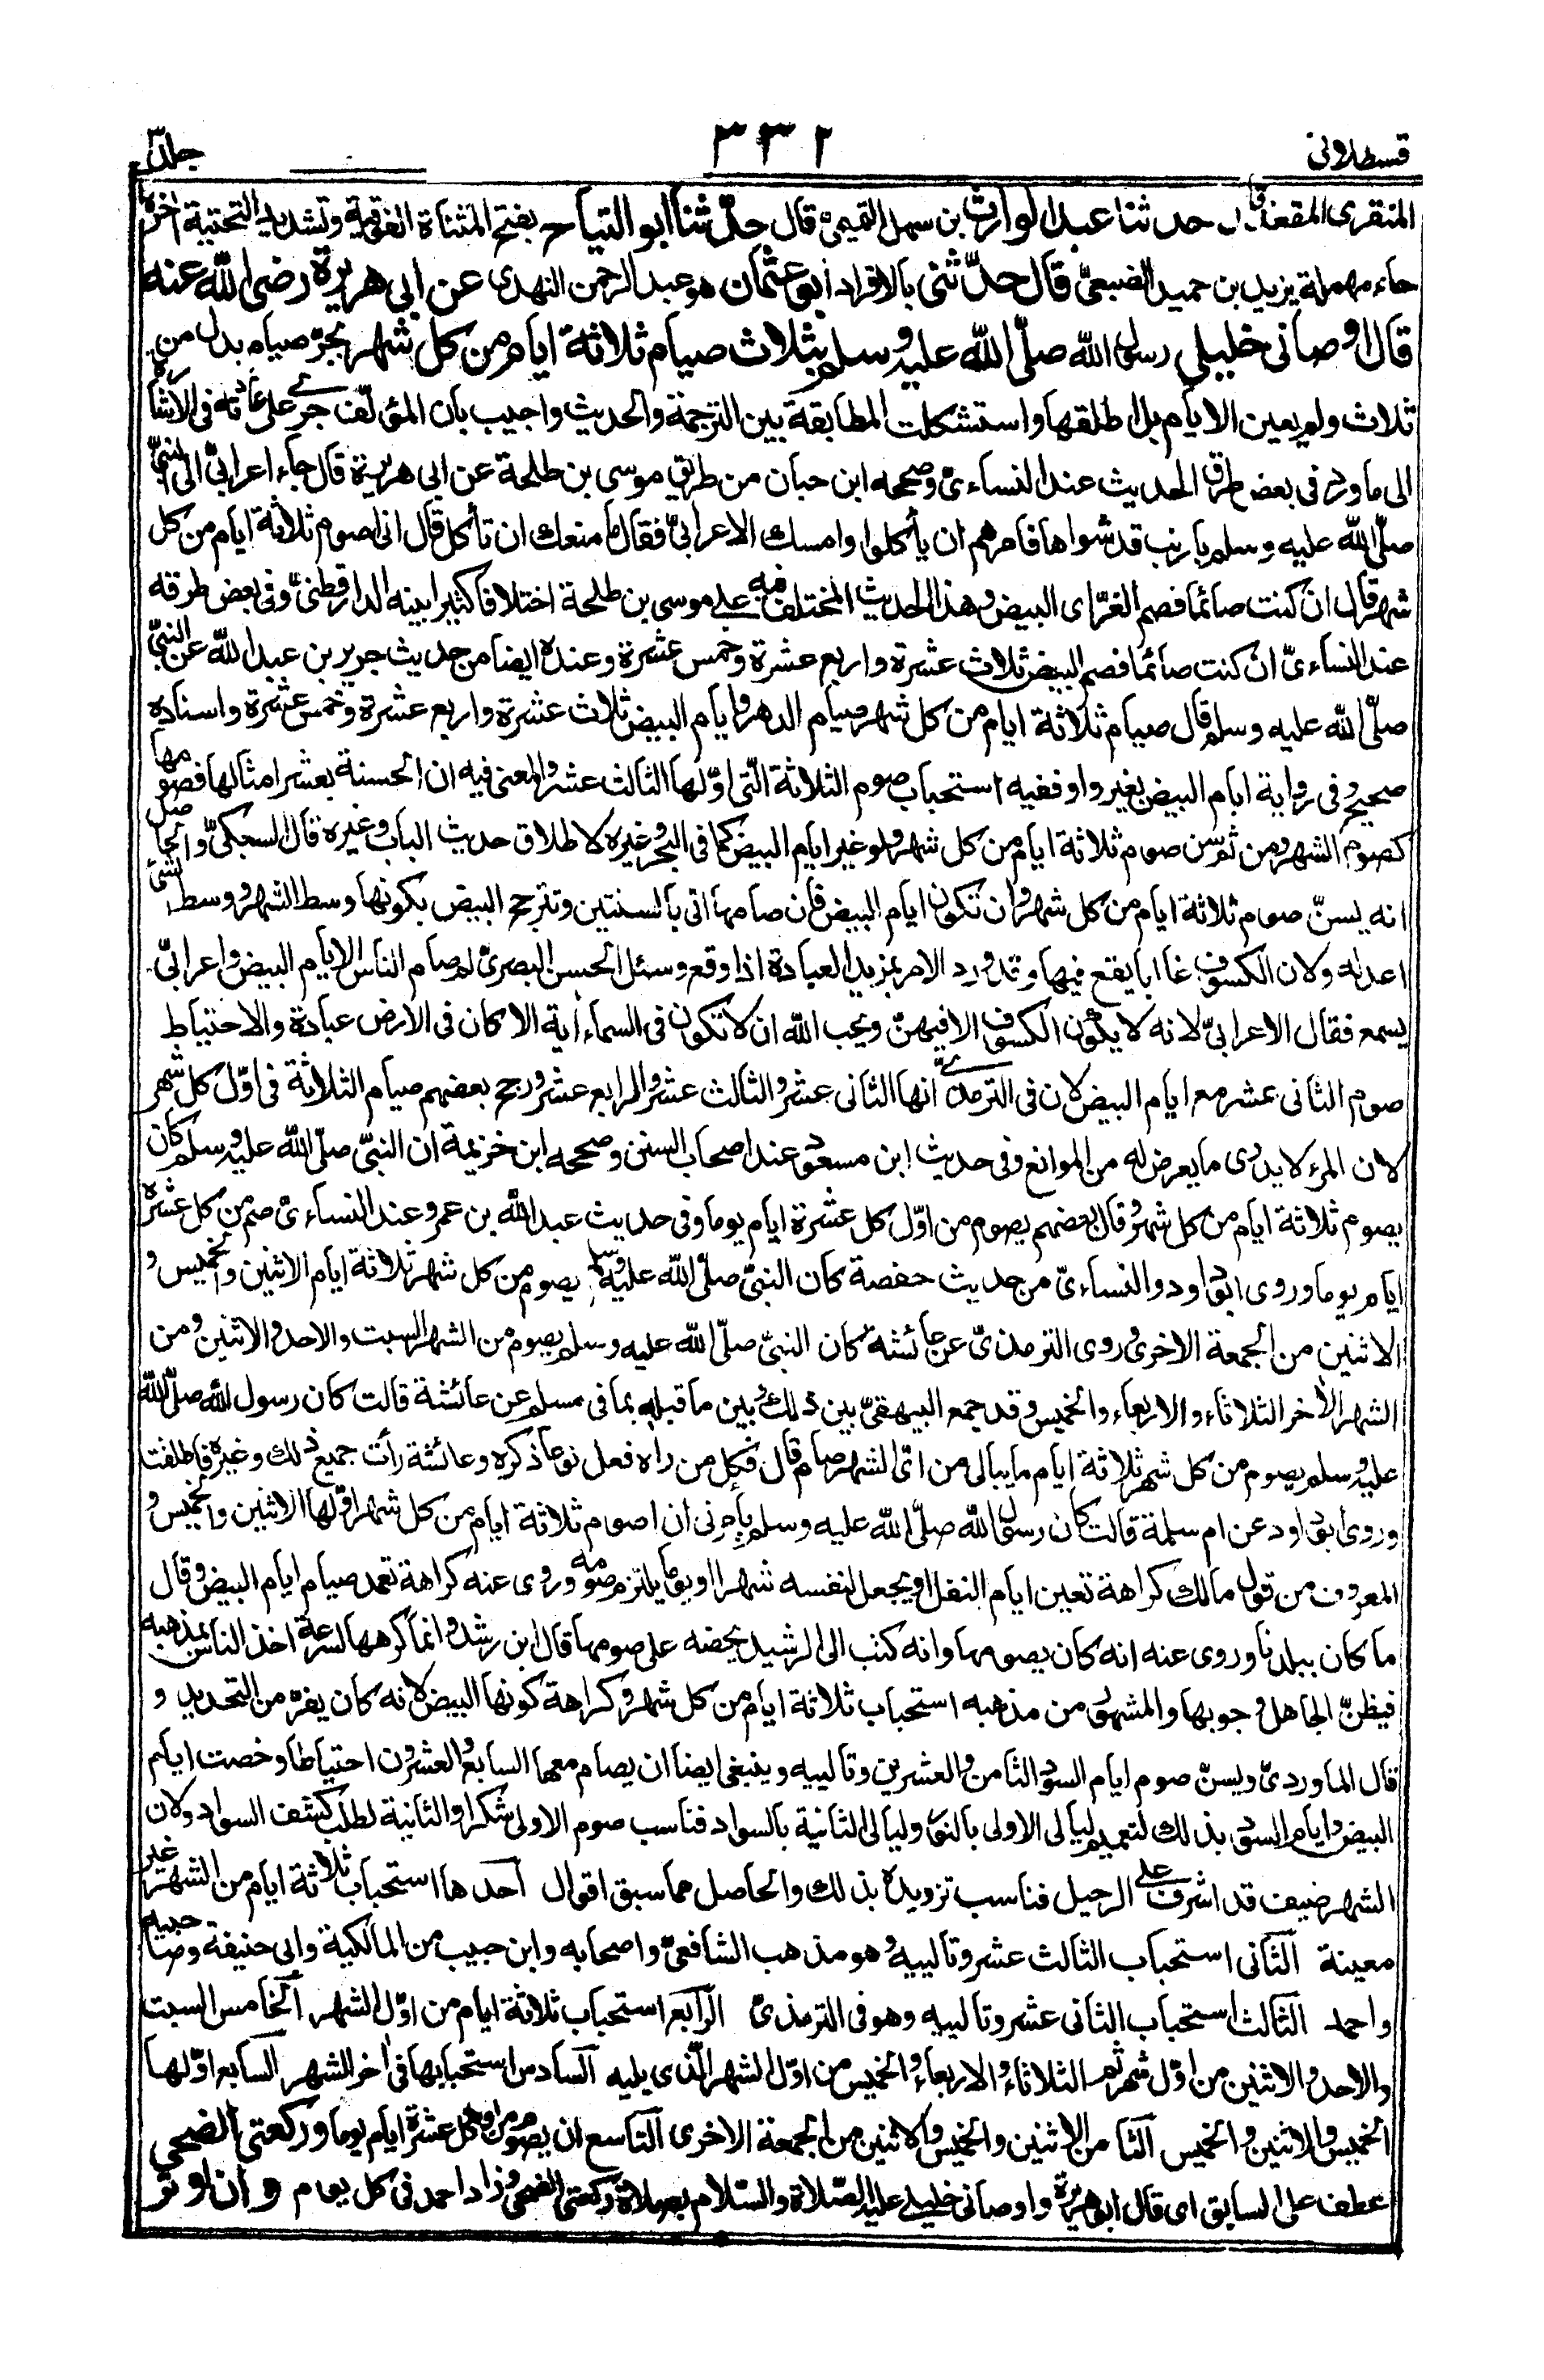 قسطلانی
٣٣٢
جلد٣
المنقرى المقعد قال حدثنا عبد الوارث بن سهل التميمىّ قال حدّثنا ابو التياح بفتح المثناة الفوقية وتشديد التحتية اخره
حاء مهملة يزيد بن حميد الضبعىّ قال حدّثنى بالافراد ابو عثمان هو عبد الرحمن النهدى عن ابى هريرة رضى الله عنه
قال اوصانى خليلى رسول الله صلّى الله عليه وسلم بثلاث صيام ثلاثة ايام من كل شهر بجرّ صيام بدل من
ثلاث ولم يعين الايام بل اطلقها واستشكلت المطابقة بين الترجمة والحديث واجيب بان المؤلّف جرى على عادته فى الاشارة
الى ما ورد فى بعض طرق الحديث عند النساءىّ وصححه ابن حبان من طريق موسى بن طلحة عن ابى هريرة قال جاء اعرابىّ الى النبىّ
صلّى الله عليه وسلم بارنب قد شواها فامرهم ان يأكلوا وامسك الاعرابىّ فقال ما منعك ان تأكل قال انى اصوم ثلاثة ايام من كل
شهر قال ان كنت صائما فصم الغرّ اى البيض وهذا الحديث المختلف فيه على موسى بن طلحة اختلافا كثيرا بينه الدارقطنىّ وفى بعض طرقه
عند النساءىّ ان كنت صائما فصم البيض ثلاث عشرة واربع عشرة وخمس عشرة وعنده ايضا من حديث جرير بن عبد الله عن النبىّ
صلّى الله عليه وسلم قال صيام ثلاثة ايام من كل شهر صيام الدهر وايام البيض ثلاث عشرة واربع عشرة وخمس عشرة واسناده
صحيح وفى رواية ايام البيض بغير واو ففيه استحباب صوم الثلاثة الّتى اوّلها الثالث عشر والمعنى فيه ان الحسنة بعشر امثالها فصومها
كصوم الشهر ومن ثم سن صوم ثلاثة ايام من كل شهر ولو غير ايام البيض كما فى البحر وغيره لاطلاق حديث الباب وغيره قال السبكىّ والحاصل
انه يسنّ صوم ثلاثة ايام من كل شهر وان تكون ايام البيض فان صامها اتى بالسنتين وتترجح البيض بكونها وسط الشهر ووسط الشئ
اعدله ولان الكسوف غالبا يقع فيها وقد ورد الامر بمزيد العبادة اذا وقع وسئل الحسن البصرىّ لم صام الناس الايام البيض واعرابىّ
يسمع فقال الاعرابىّ لانه لا يكون الكسوف الا فيهنّ ويحب الله ان لا تكون فى السماء اية الا كان فى الارض عبادة والاحتياط
صوم الثانى عشر مع ايام البيض لان فى الترمذىّ انها الثانى عشر والثالث عشر والرابع عشر ورجح بعضهم صيام الثلاثة فى اوّل كل شهر
لان المرء لا يدرى ما يعرض له من الموانع وفى حديث ابن مسعود عند اصحاب السنن وصححه ابن خزيمة ان النبىّ صلّى الله عليه وسلم كان
يصوم ثلاثة ايام من كل شهر وقال بعضهم يصوم من اوّل كل عشرة ايام يوما وفى حديث عبد الله بن عمرو عند النساءىّ صم من كل عشرة
ايام يوما وروى ابو داود والنساءىّ من حديث حفصة كان النبىّ صلّى الله عليه وسلم يصوم من كل شهر ثلاثة ايام الاثنين والخميس و
الاثنين من الجمعة الاخرى وروى الترمذىّ عن عائشة كان النبىّ صلّى الله عليه وسلم يصوم من الشهر السبت والاحد والاثنين ومن
الشهر الاخر الثلاثاء والاربعاء والخميس وقد جمع البيهقىّ بين ذلك وبين ما قبله بما فى مسلم عن عائشة قالت كان رسول الله صلّى الله
عليه وسلم يصوم من كل شهر ثلاثة ايام ما يبالى من اىّ الشهر صام قال فكل من راه فعل نوعا ذكره وعائشة رأت جميع ذلك وغيره فاطلقت
وروى ابو داود عن ام سلمة قالت كان رسول الله صلّى الله عليه وسلم يأمرنى ان اصوم ثلاثة ايام من كل شهر اوّلها الاثنين والخميس و
المعروف من قول مالك كراهة تعين ايام النفل او يجعل لنفسه شهرا او يوما يلتزم صومه وروى عنه كراهة تعمد صيام ايام البيض وقال
ما كان ببلدنا وروى عنه انه كان يصومها وانه كتب الى الرشيد يحضه على صومها قال ابن رشد وانما كرهها لسرعة اخذ الناس بمذهبه
فيظنّ الجاهل وجوبها والمشهور من مذهبه استحباب ثلاثة ايام من كل شهر وكراهة كونها البيض لانه كان يفرّ من التحديد و
قال الماوردىّ ويسنّ صوم ايام السود الثامن والعشرين وتالييه وينبغى ايضا ان يصام معها السابع والعشرون احتياطا وخصت ايام
البيض وايام السود بذلك لتعميم ليالى الاولى بالنور وليالى الثانية بالسواد فناسب صوم الاولى شكرا والثانية لطلب كشف السواد ولان
الشهر ضيف قد اشرف على الرحيل فناسب تزويده بذلك والحاصل مما سبق اقوال احدها استحباب ثلاثة ايام من الشهر غير
معينة الثانى استحباب الثالث عشر وتالييه وهو مذهب الشافعىّ واصحابه وابن حبيب من المالكية وابى حنيفة وصاحبيه
واحمد الثالث استحباب الثانى عشر وتالييه وهو فى الترمذىّ الرابع استحباب ثلاثة ايام من اوّل الشهر الخامس السبت
والاحد والاثنين من اوّل شهر ثم الثلاثاء والاربعاء والخميس من اوّل الشهر الّذى يليه السادس استحبابها فى اخر الشهر السابع اوّلها
الخميس والاثنين والخميس الثامن الاثنين والخميس والاثنين من الجمعة الاخرى التاسع ان يصوم من اوّل كل عشرة ايام يوما وركعتى الضحى
عطف على السابق اى قال ابو هريرة واوصانى خليلى عليه الصلاة والسّلام بصلاة ركعتى الضحى وزاد احمد فى كل يوم وان اوتر